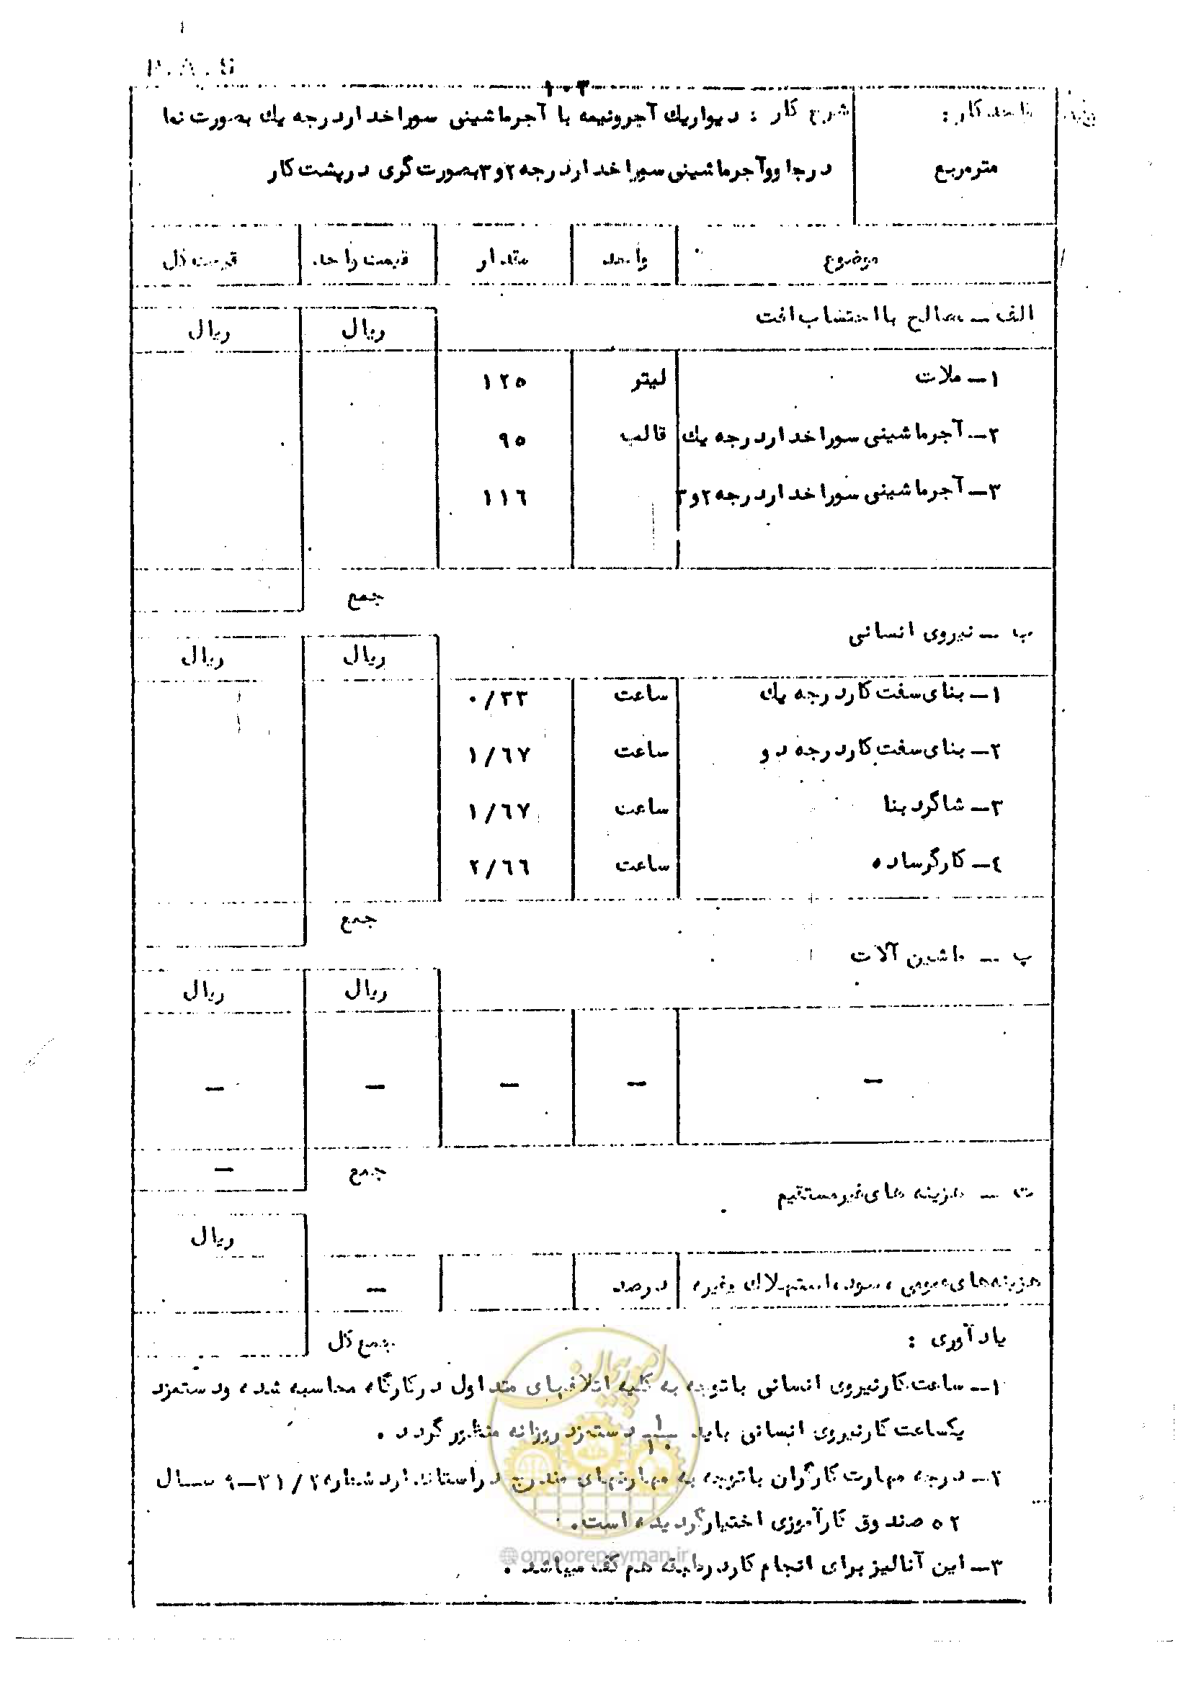 ۱۰۳
واحد کار :
شرح کار : دیوار یك آجرونیمه با آجرماشینی سوراخدار درجه یك بصورت نما
مترمربع
در جلو وآجرماشینی سوراخدار درجه ۲و۳بصورت گری در پشت کار
موضوع واحد مقدار قیمت واحد قیمت کل
الف – مصالح با احتساب افت ریال ریال
۱– ملات لیتر ۱۲۵
۲– آجرماشینی سوراخدار درجه یك قالب ۹۵
۳– آجرماشینی سوراخدار درجه ۲و۳ ۱۱۶
جمع
ب – نیروی انسانی ریال ریال
۱– بنای سفت کار درجه یك ساعت ۰/۳۳
۲– بنای سفت کار درجه دو ساعت ۱/۶۷
۳– شاگرد بنا ساعت ۱/۶۷
۴– کارگر ساده ساعت ۲/۶۶
جمع
پ – ماشین آلات ریال ریال
– – – – –
جمع –
ت – هزینه های غیرمستقیم ریال
هزینه‌های عمومی ، سود، استهلاك وغیره درصد –
یادآوری : جمع کل
۱– ساعت کارنیروی انسانی باتوجه به کلیه اتلافهای متداول درکارگاه محاسبه شده ودستمزد
یکساعت کارنیروی انسانی باید ۱/۱۰ دستمزد روزانه منظور گردد .
۲– درجه مهارت کارگران باتوجه به مهارتهای مندرج در استاندارد شماره ۹–۳۱/۲ سال
۲۵ صندوق کارآموزی اختیار گردیده است.
۳– این آنالیز برای انجام کار در طبقه هم کف میباشد .
امور پیمان
@omoorepeyman.ir